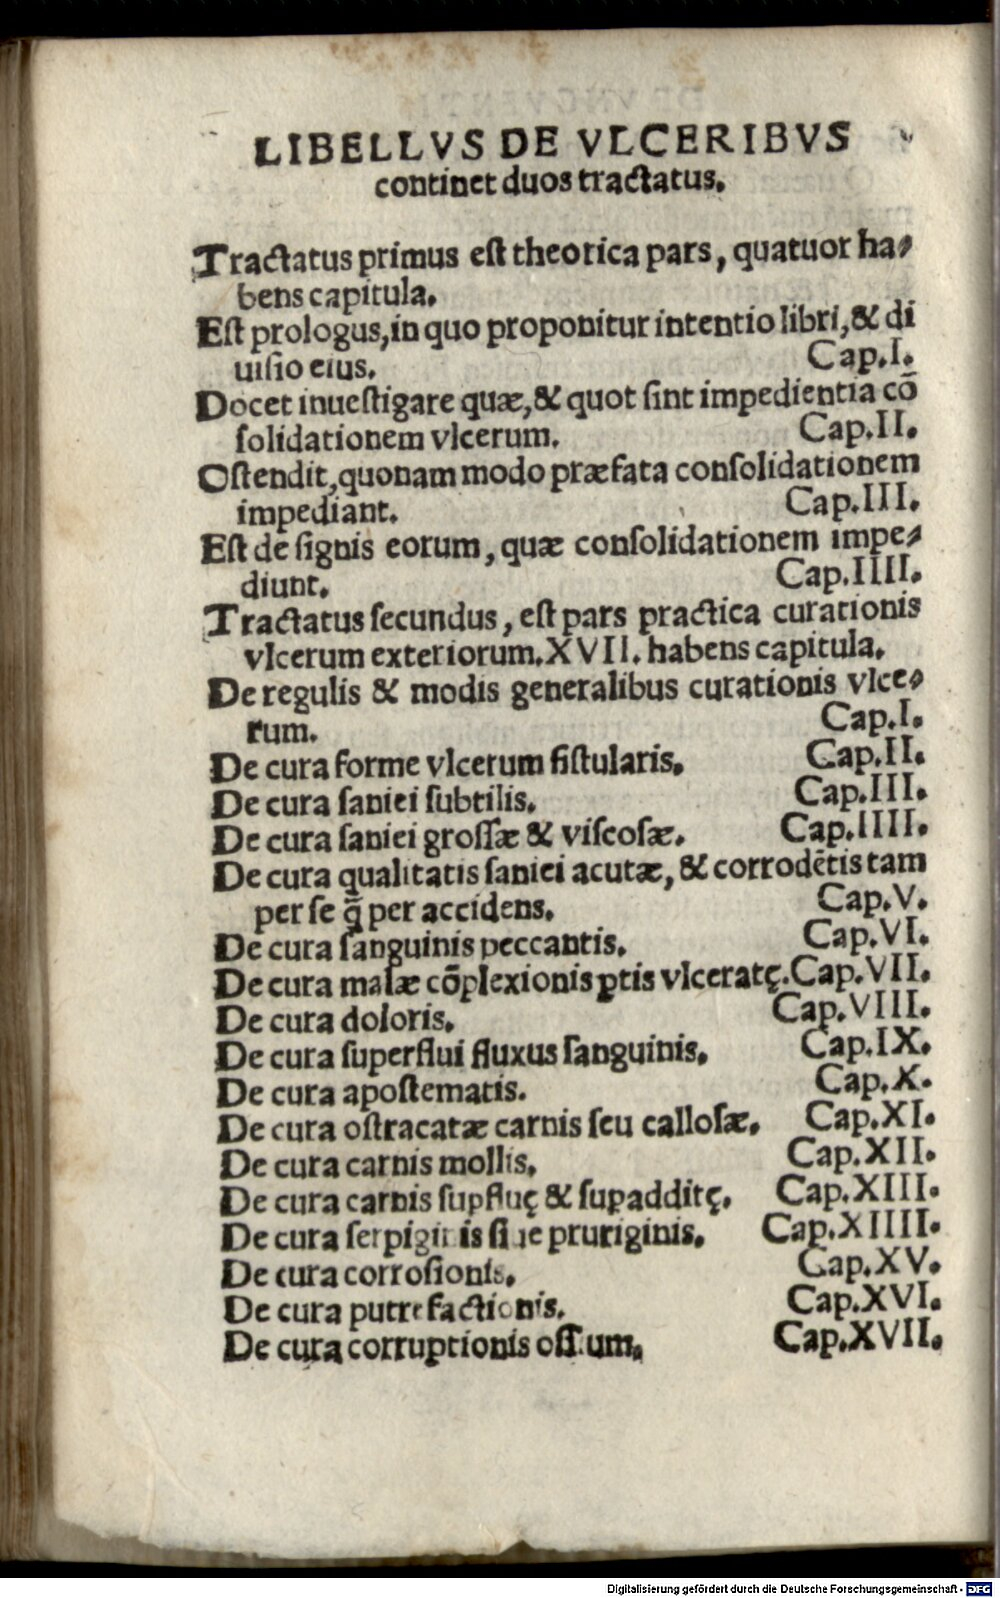 LIBELLVS DE VLCERIBVS
continet duos tractatus.
Tractatus primus est theorica pars, quatuor ha-
bens capitula.
Est prologus, in quo proponitur intentio libri, & di
uisio eius. Cap.I.
Docet inuestigare quæ, & quot sint impedientia cō
solidationem vlcerum. Cap.II.
Ostendit, quonam modo præfata consolidationem
impediant. Cap.III.
Est de signis eorum, quæ consolidationem impe-
diunt. Cap.IIII.
Tractatus secundus, est pars practica curationis
vlcerum exteriorum.XVII. habens capitula.
De regulis & modis generalibus curationis vlce-
rum. Cap.I.
De cura forme vlcerum fistularis. Cap.II.
De cura saniei subtilis. Cap.III.
De cura saniei grossæ & viscosæ. Cap.IIII.
De cura qualitatis saniei acutæ, & corrodētis tam
per se q̄ per accidens. Cap.V.
De cura sanguinis peccantis. Cap.VI.
De cura malæ cōplexionis ꝑtis vlceratę. Cap.VII.
De cura doloris. Cap.VIII.
De cura superflui fluxus sanguinis. Cap.IX.
De cura apostematis. Cap.X.
De cura ostracatæ carnis seu callosæ. Cap.XI.
De cura carnis mollis. Cap.XII.
De cura carnis suꝑfluę & suꝑadditę. Cap.XIII.
De cura serpiginis siue pruriginis. Cap.XIIII.
De cura corrosionis. Cap.XV.
De cura putrefactionis. Cap.XVI.
De cura corruptionis ossium. Cap.XVII.
Digitalisierung gefördert durch die Deutsche Forschungsgemeinschaft - DFG